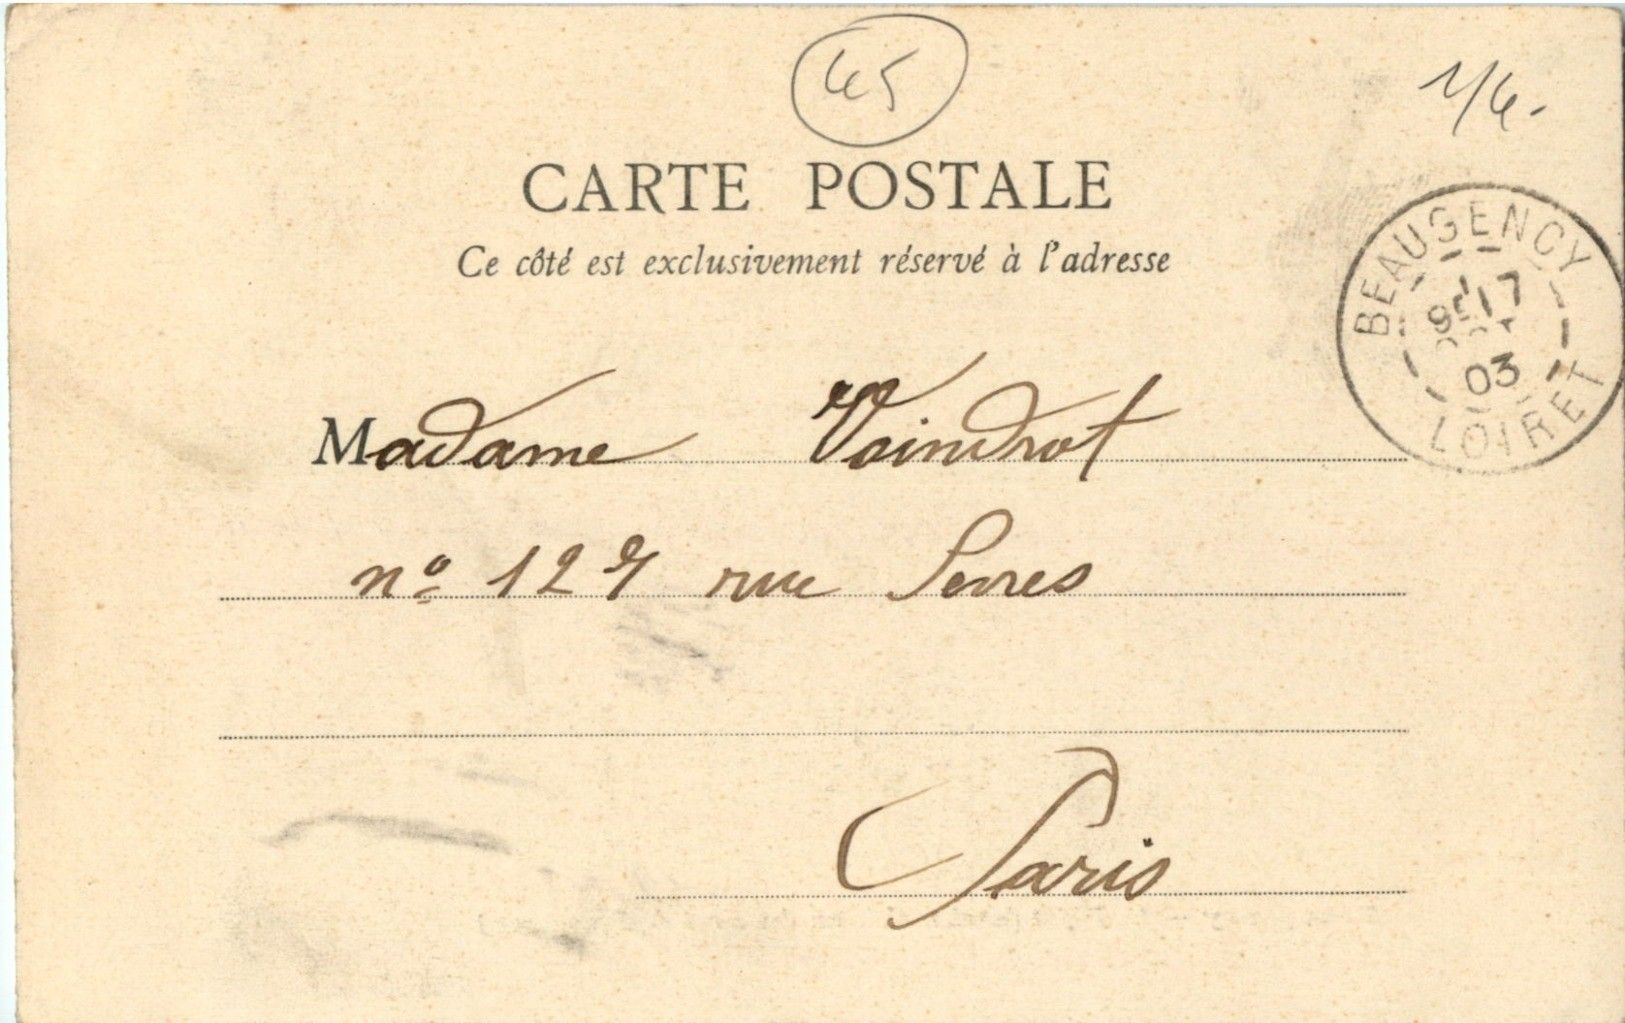 45
1/4.
CARTE POSTALE
Ce côté est exclusivement réservé à l'adresse
BEAUGENCY
17
03
LOIRET
Madame Voindrot
nº 127 rue Sevres
Paris